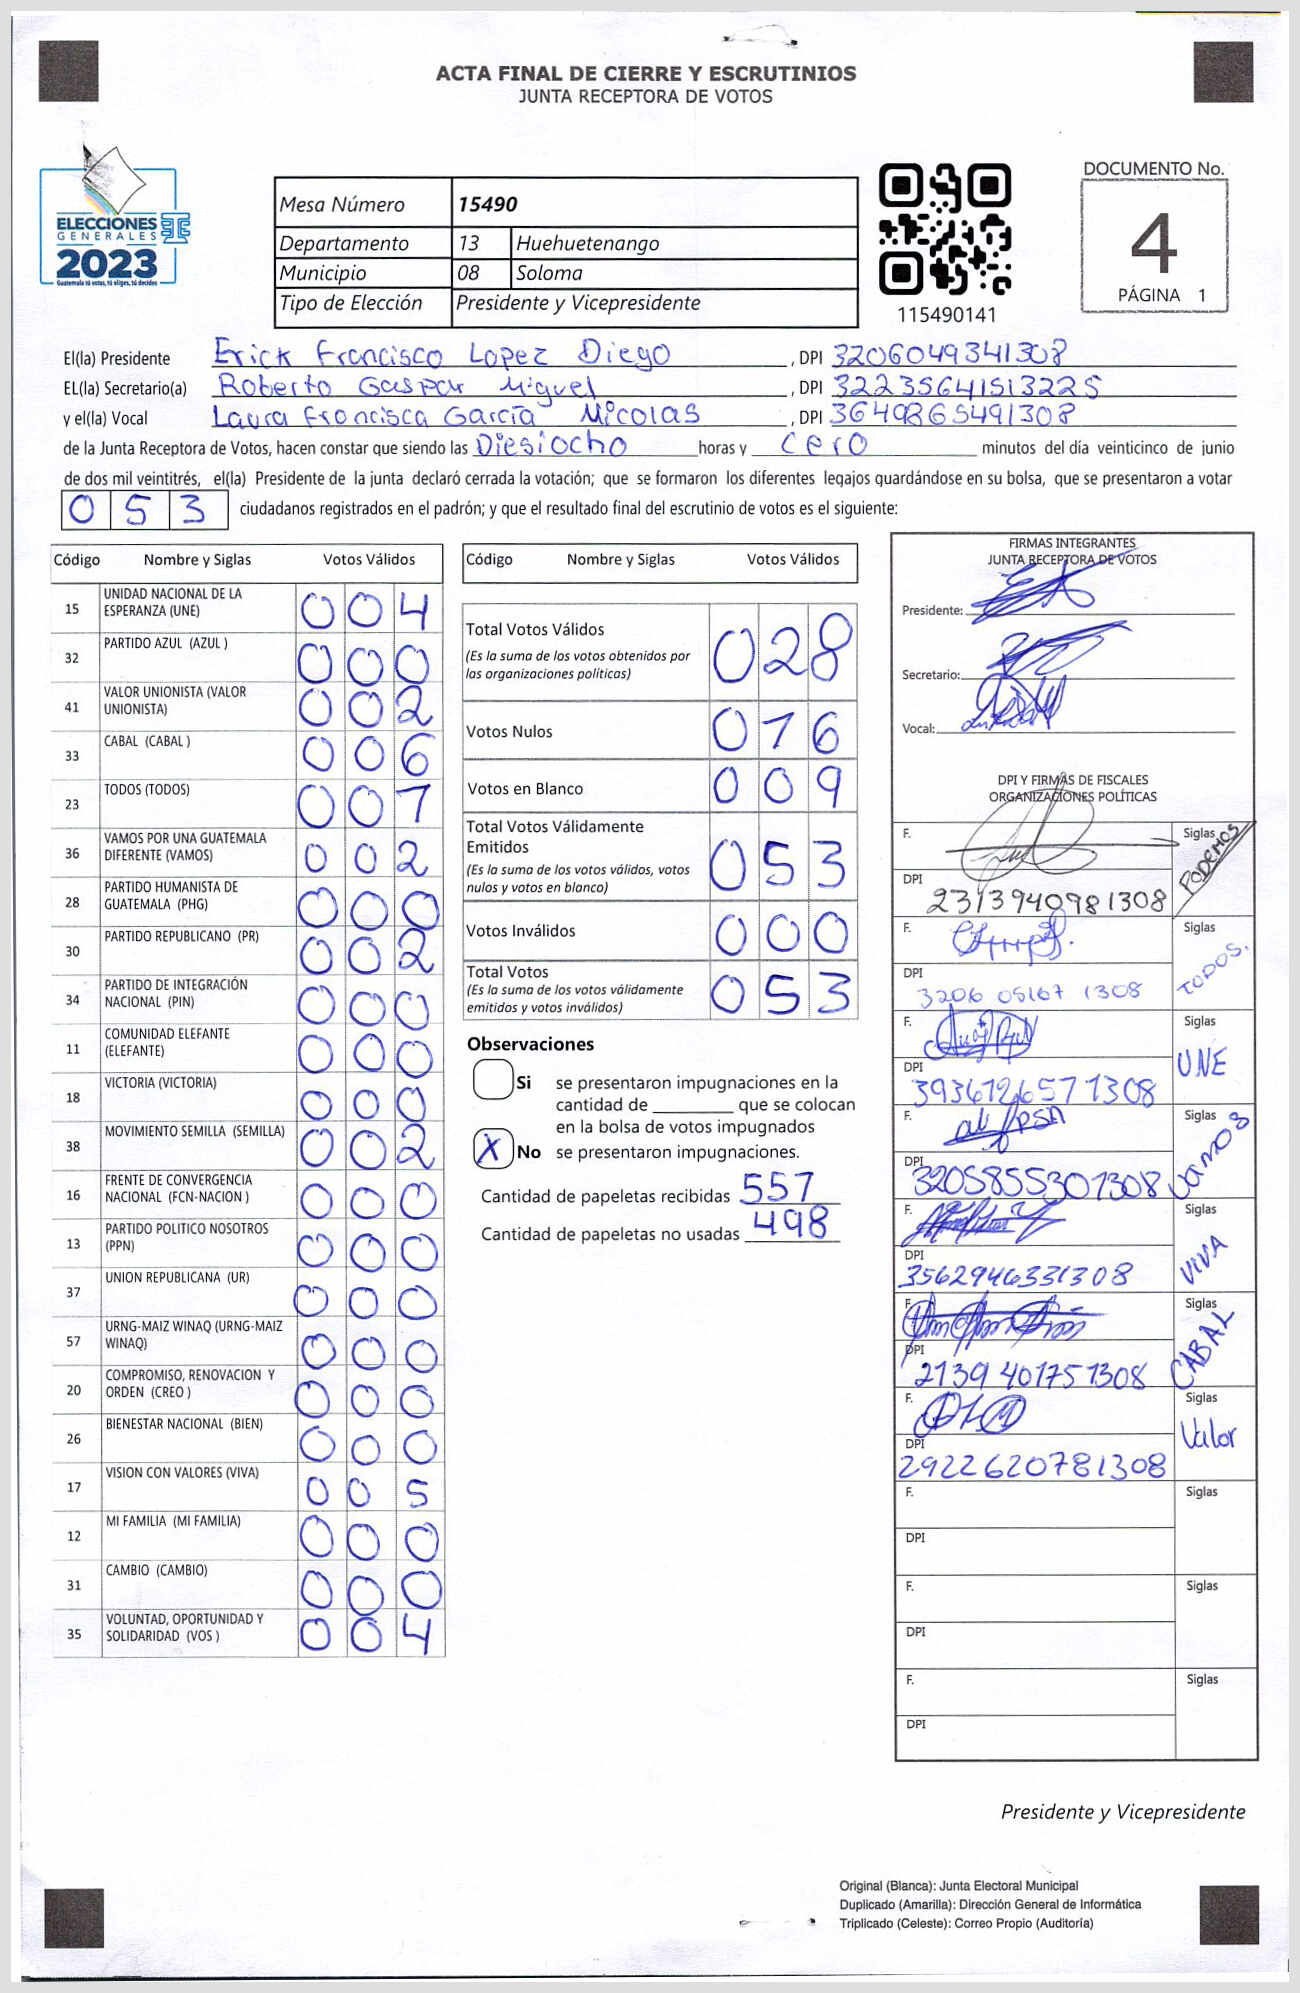 ACTA FINAL DE CIERRE Y ESCRUTINIOS
JUNTA RECEPTORA DE VOTOS
ELECCIONES
GENERALES
2023
Guatemala tú votas, tú eliges, tú decides
Mesa Número 15490
Departamento 13 Huehuetenango
Municipio 08 Soloma
Tipo de Elección Presidente y Vicepresidente
115490141
DOCUMENTO No.
4
PÁGINA 1
El(la) Presidente Erick Francisco Lopez Diego , DPI 3206049341308
EL(la) Secretario(a) Roberto Gaspar Miguel , DPI 3223564151322S
y el(la) Vocal Laura Francisca García Nicolas , DPI 3649865491308
de la Junta Receptora de Votos, hacen constar que siendo las Diesiocho horas y cero minutos del día veinticinco de junio
de dos mil veintitrés, el(la) Presidente de la junta declaró cerrada la votación; que se formaron los diferentes legajos quardándose en su bolsa, que se presentaron a votar
0 5 3 ciudadanos registrados en el padrón; y que el resultado final del escrutinio de votos es el siguiente:
Código Nombre y Siglas Votos Válidos
15 UNIDAD NACIONAL DE LA ESPERANZA (UNE) 0 0 4
32 PARTIDO AZUL (AZUL ) 0 0 0
41 VALOR UNIONISTA (VALOR UNIONISTA) 0 0 2
33 CABAL (CABAL ) 0 0 6
23 TODOS (TODOS) 0 0 7
36 VAMOS POR UNA GUATEMALA DIFERENTE (VAMOS) 0 0 2
28 PARTIDO HUMANISTA DE GUATEMALA (PHG) 0 0 0
30 PARTIDO REPUBLICANO (PR) 0 0 2
34 PARTIDO DE INTEGRACIÓN NACIONAL (PIN) 0 0 0
11 COMUNIDAD ELEFANTE (ELEFANTE) 0 0 0
18 VICTORIA (VICTORIA) 0 0 0
38 MOVIMIENTO SEMILLA (SEMILLA) 0 0 2
16 FRENTE DE CONVERGENCIA NACIONAL (FCN-NACION ) 0 0 0
13 PARTIDO POLITICO NOSOTROS (PPN) 0 0 0
37 UNION REPUBLICANA (UR) 0 0 0
57 URNG-MAIZ WINAQ (URNG-MAIZ WINAQ) 0 0 0
20 COMPROMISO, RENOVACION Y ORDEN (CREO ) 0 0 0
26 BIENESTAR NACIONAL (BIEN) 0 0 0
17 VISION CON VALORES (VIVA) 0 0 5
12 MI FAMILIA (MI FAMILIA) 0 0 0
31 CAMBIO (CAMBIO) 0 0 0
35 VOLUNTAD, OPORTUNIDAD Y SOLIDARIDAD (VOS ) 0 0 4
Código Nombre y Siglas Votos Válidos
Total Votos Válidos 0 2 8
(Es la suma de los votos obtenidos por
las organizaciones políticas)
Votos Nulos 0 1 6
Votos en Blanco 0 0 9
Total Votos Válidamente
Emitidos 0 5 3
(Es la suma de los votos válidos, votos
nulos y votos en blanco)
Votos Inválidos 0 0 0
Total Votos 0 5 3
(Es la suma de los votos válidamente
emitidos y votos inválidos)
Observaciones
Si se presentaron impugnaciones en la
cantidad de ________ que se colocan
en la bolsa de votos impugnados
X No se presentaron impugnaciones.
Cantidad de papeletas recibidas 557
Cantidad de papeletas no usadas 498
FIRMAS INTEGRANTES
JUNTA RECEPTORA DE VOTOS
Presidente:
Secretario:
Vocal:
DPI Y FIRMAS DE FISCALES
ORGANIZACIONES POLÍTICAS
F. Siglas PODEMOS
DPI 2313940981308
F. Siglas TODOS.
DPI 3206 05167 1308
F. Siglas UNE
DPI 3936126571308
F. Siglas vamos
DPI 3205855301308
F. Siglas VIVA
DPI 3562946331308
F. Siglas CABAL
DPI 2139 401751308
F. Siglas Valor
DPI 2922620781308
F. Siglas
DPI
F. Siglas
DPI
F. Siglas
DPI
Presidente y Vicepresidente
Original (Blanca): Junta Electoral Municipal
Duplicado (Amarilla): Dirección General de Informática
Triplicado (Celeste): Correo Propio (Auditoría)